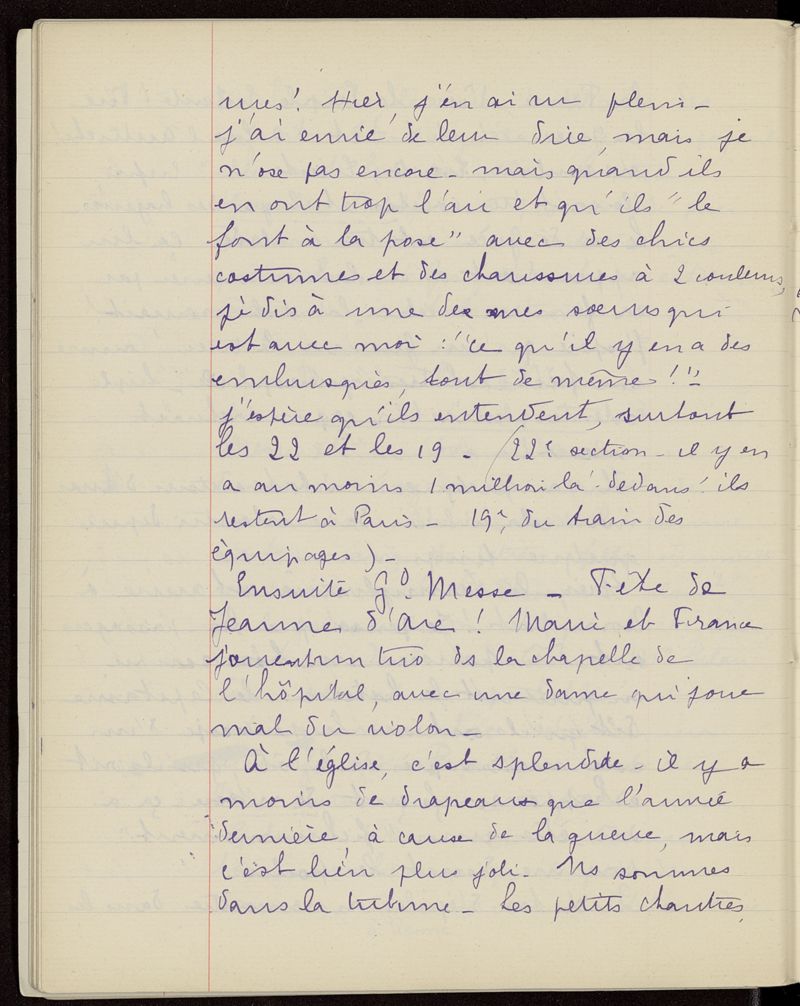 mes! Hier, j'en ai vu plein -
j'ai envie de leur dire, mais je
n'ose pas encore - mais quand ils
en ont trop l'air et qu'ils "le
font à la pose" avec des chics
costumes et des chaussures à 2 couleurs,
je dis à une de mes soeurs qui
est avec moi : "ce qu'il y en a des
embusqués, tout de même !"
j'espère qu'ils entendent, surtout
les 22 et les 19 - (22e section - il y en
a au moins 1 million là-dedans! ils
restent à Paris - 19e, du train des
équipages) -
Ensuite Gd Messe - Fête de
Jeanne d'Arc ! Marie et France
jouent un trio ds la chapelle de
l'hôpital, avec une dame qui joue
mal du violon -
À l'église, c'est splendide - il y a
moins de drapeaux que l'année
dernière, à cause de la guerre, mais
c'est bien plus joli - Ns sommes
dans la tribune - Les petits chantres,